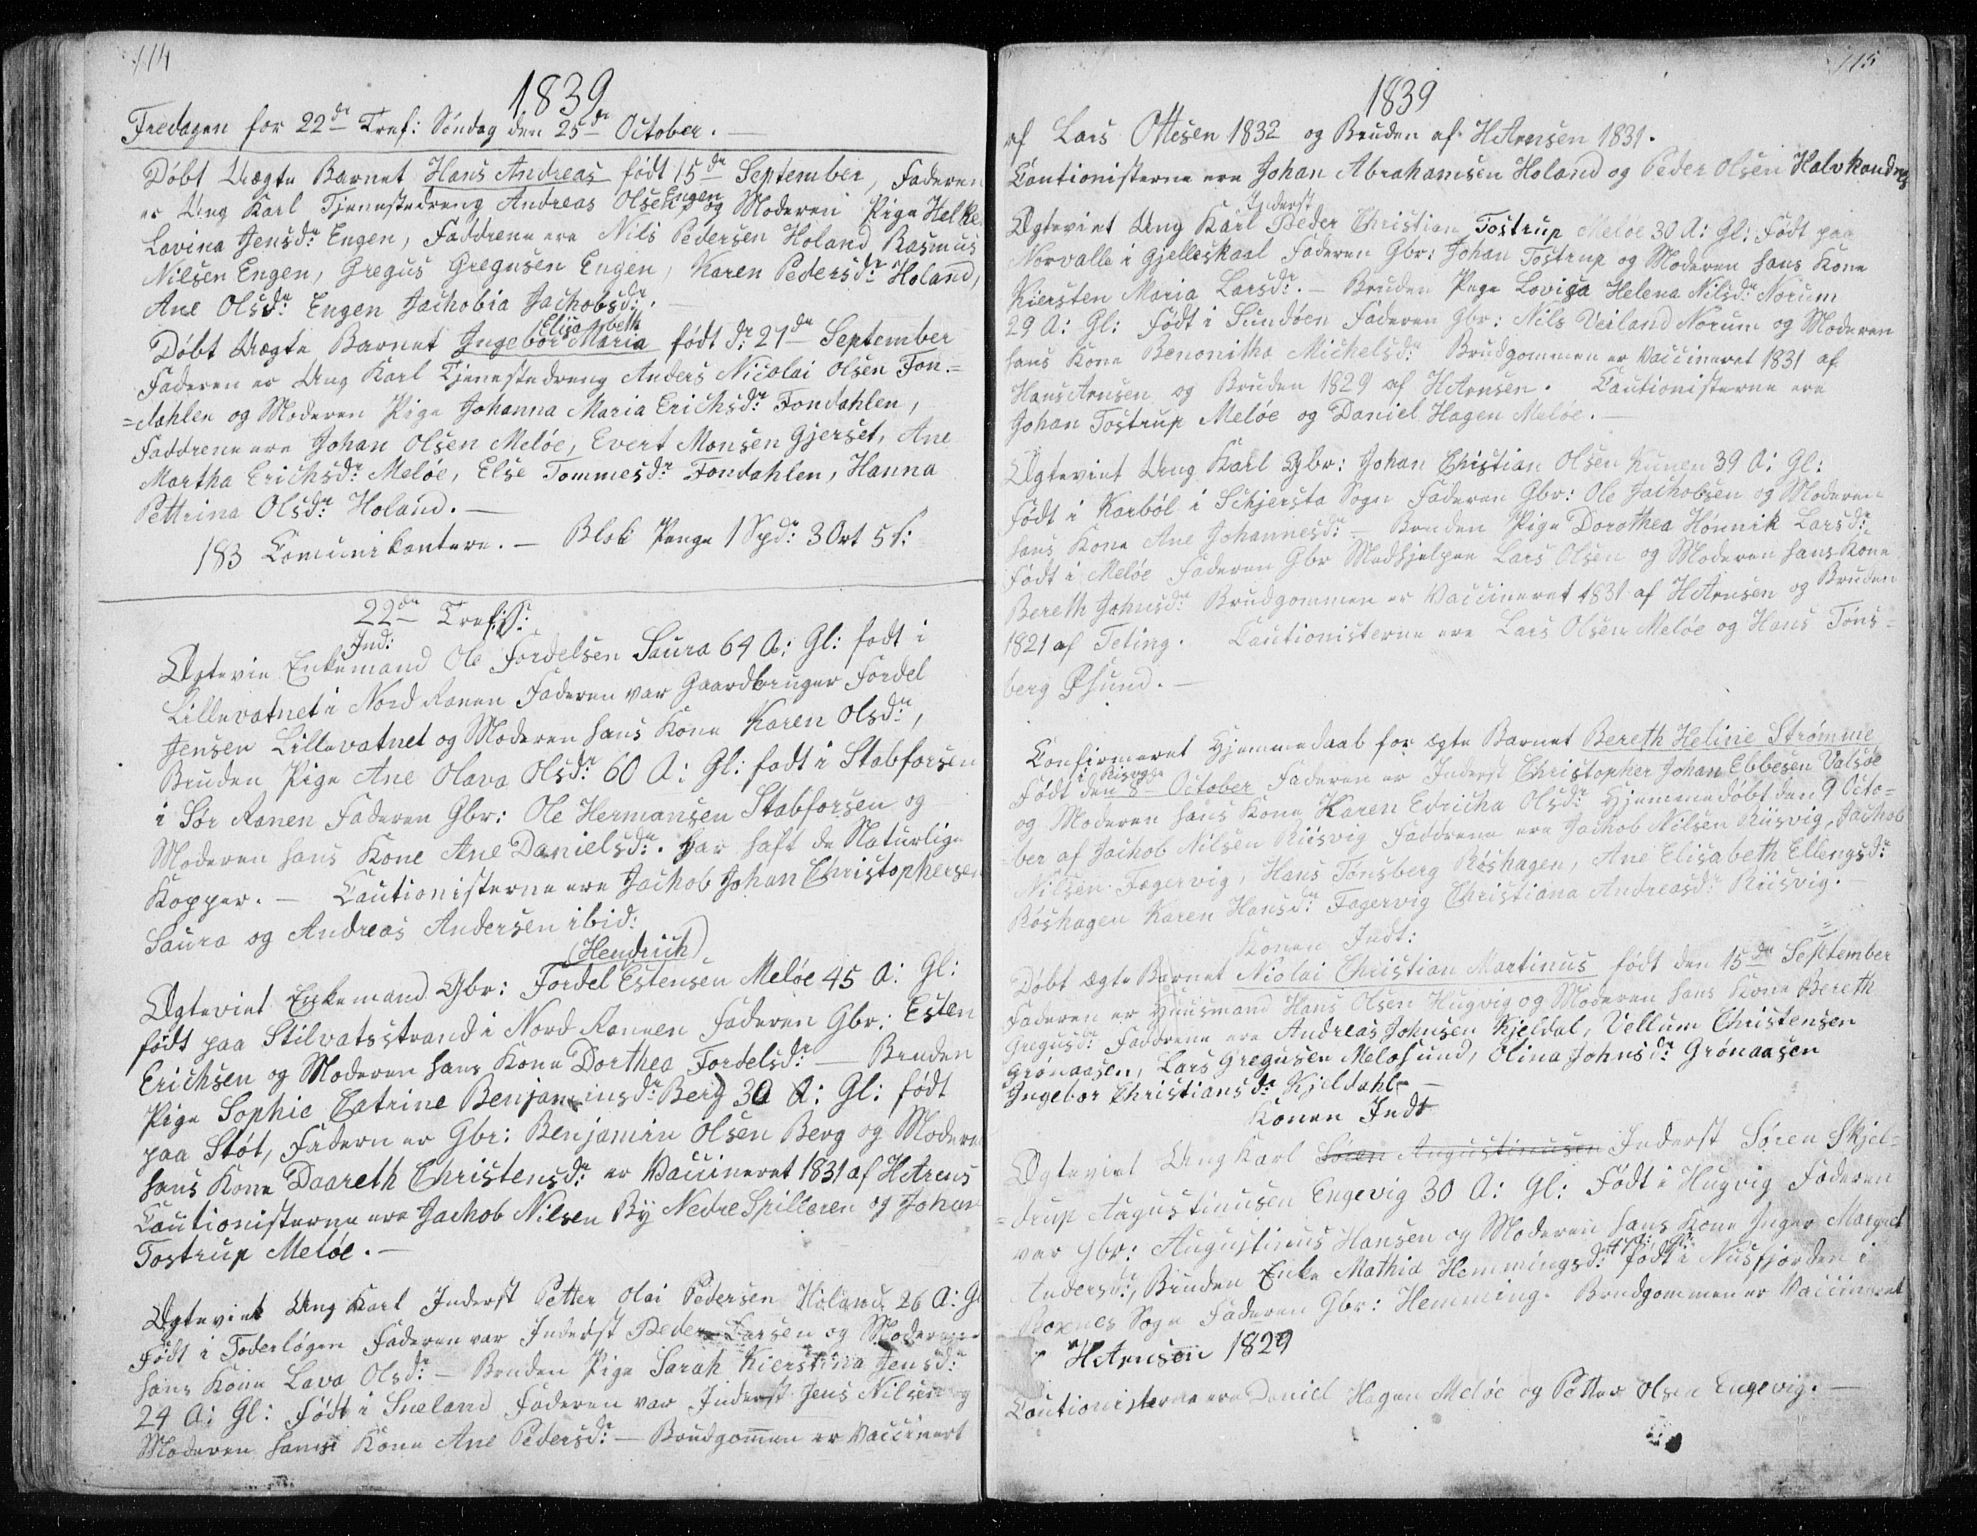 114
1839
Fredagen for 22de Tref: Søndag den 25de October. —
Døbt Uægte Barnet Hans Andreas født 15de September, Faderen
er Ung Karl Tjenestedreng Andreas Olsen Engen og Moderen Pige Helke
Lovina Jensdr: Engen, Faddrene ere Nils Pedersen Holand, Rasmus
Nilsen Engen, Gregus Gregusen Engen, Karen Pedersdr: Holand,
Ane Olsdr: Engen Jachobia Jachobsdr:. —
Elisabeth
Døbt Uægte Barnet Ingebor Maria født d: 27de September
Faderen er Ung Karl Tjenestedreng Anders Nicolai Olsen Fon=
=dahlen og Moderen Pige Johanna Maria Erichsdr: Fondahlen,
Faddrene ere Johan Olsen Meløe, Evert Monsen Gjerset, Ane
Martha Erichsdr: Meløe, Else Tommesdr: Fondahlen, Hanna
Pettrina Olsdr: Holand. —
183 Comunikantere. — Blok Penge 1 Spdr: 3 Ort 5 s:
22de Trefss:
Ind:
Ægtevie Enkemand Ole Fordelsen Saura 64 A: Gl: født i
Lillevatnet i Nord Ranen Faderen var Gaardbruger Fordel
Jensen Lillevatnet og Moderen hans Kone Karen Olsdr:,
Bruden Pige Ane Olava Olsdr: 60 A: Gl: født i Stabforsen
i Sør Ranen Faderen Gbr: Ole Hermansen Stabforsen og
Moderen hans Kone Ane Danielsdr:. Har haft de Naturlige
Kopper. — Cautionisterne ere Jachob Johan Christophersen
Saura og Andreas Andersen ibid:
(Hendrich)
Ægteviet Enkemand Gbr: Fordel Estensen Meløe 45 A: Gl:
født paa Stilvatsstrand i Nord Ranen Faderen Gbr: Esten
Erichsen og Moderen hans Kone Dorthea Fordelsdr: — Bruden
Pige Sophie Catrine Benjaminsdr: Berg 30 A: Gl: født
paa Støt, Fadern er Gbr: Benjamin Olsen Berg og Moderen
hans Kone Daareth Christensdr: er Vaccineret 1831 af H Arens
Cautionisterne ere Jachob Nilsen By Nedre Spilleren og Johan
Tostrup Meløe. —
Ægteviet Ung Karl Inderst Petter Olai Pedersen Holand 26 A: Gl
Født i Foderløgen Faderen var Inderst Peder Larsen og Moderen
hans Kone Lava Olsdr: — Bruden Pige Sarah Kierstina Jensdr:
24 A: Gl: Født i Sneland Faderen var Inderst Jens Nilsen og
Moderen hans Kone Ane Pedersdr: — Brudgommen er Vaccinert
115
1839
af Lars Ottesen 1832 og Bruden af H Arensen 1831.
Cautionisterne ere Johan Abrahamsen Holand og Peder Olsen Halvkandnes
Inderst
Ægteviet Ung Karl Peder Christian Tostrup Meløe 30 A: Gl: Født paa
Norvalle i Gjelleskaal Faderen Gbr: Johan Tostrup og Moderen hans Kone
Kiersten Maria Larsdr:. — Bruden Pige Lovisa Helena Nilsdr: Norum
29 A: Gl: Født i Sundøen Faderen Gbr: Nils Veiland Norum og Moderen
hans Kone Benonitha Michelsdr: Brudgommen er Vaccineret 1831 af
Hans Arnsen og Bruden 1829 af H Arnsen. Cautionisterne ere
Johan Tostrup Meløe og Daniel Hagen Meløe. —
Ægteviet Ung Karl Gbr: Johan Christian Olsen Kunen 39 A: Gl:
Født i Karbøl i Schjersta Sogn Faderen Gbr: Ole Jachobsen og Moderen
hans Kone Ane Johannesdr: — Bruden Pige Dorothea Hønnik Larsdr:
Født i Meløe Faderen Gbr Medhjelper Lars Olsen og Moderen hans Kone
Bereth Johnsdr: Brudgommen er Vaccineret 1831 af H Arnsen og Bruden
1821 af Teting. Cautionisterne ere Lars Olsen Meløe og Hans Tøns=
berg Øsund. —
Confirmeret Hjemmedaab for ægte Barnet Bereth Heline Strømme
i Risvig
Født den 8de October Faderen er Inderst Christopher Johan Ebbesen Valsøe
og Moderen hans Kone Karen Edricha Olsdr: Hjemmedøbt den 9 Octo=
=ber af Jachob Nilsen Riisvig Faddrene ere Jachob Nilsen Riisvig, Jachob
Nilsen Fagervig, Hans Tønsberg Røshagen, Ane Elisabeth Ellengsdr:
Røshagen Karen Hansdr: Fagervig Christiana Andreasdr: Riisvig. —
Konen Indt:
Døbt Ægte Barnet Nicolai Christian Martinus født den 15de September
Faderen er Huusmand Hans Olsen Hugvig og Moderen hans Kone Bereth
Gregusdr: Faddrene ere Andreas Johnsen Kjeldal, Vellum Christensen
Grønaasen, Lars Gregusen Meløsund, Olina Johnsdr: Grønaasen
Ingebor Christiansdr: Kjeldahl —
Konen Indt
Ægteviet Ung Karl Søren Augustinusen Inderst Søren Skjel=
=drup Augustinusen Engevig 30 A: Gl: Født i Hugvig Faderen
var Gbr: Augustinus Hansen og Moderen hans Kone Inger Margret
47 A: Gl:
Andersdr:, Bruden Enke Mathia Hemmingsdr: født i Nusfjorden i
Sogn Faderen Gbr: Hemming. Brudgommen er Vaccineret
H Arnsen 1829
Cautionisterne ere Daniel Hagen Meløe og Petter Olsen Engevig. —